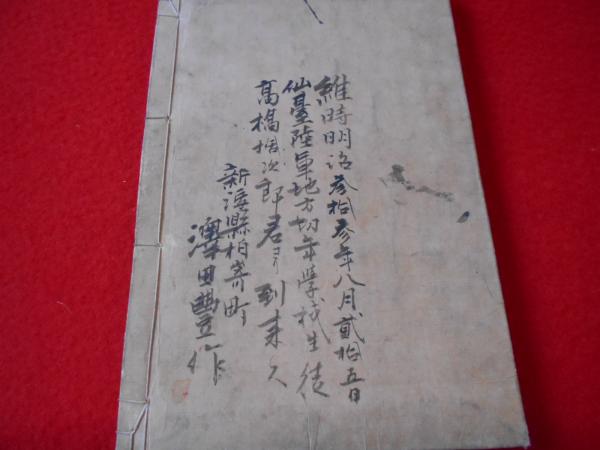 維時明治参拾参年八月貳拾五日
仙臺陸軍地方幼年学校生徒
高橋 次郎君ヨリ到来ス
新潟縣柏崎町
澤田豊作